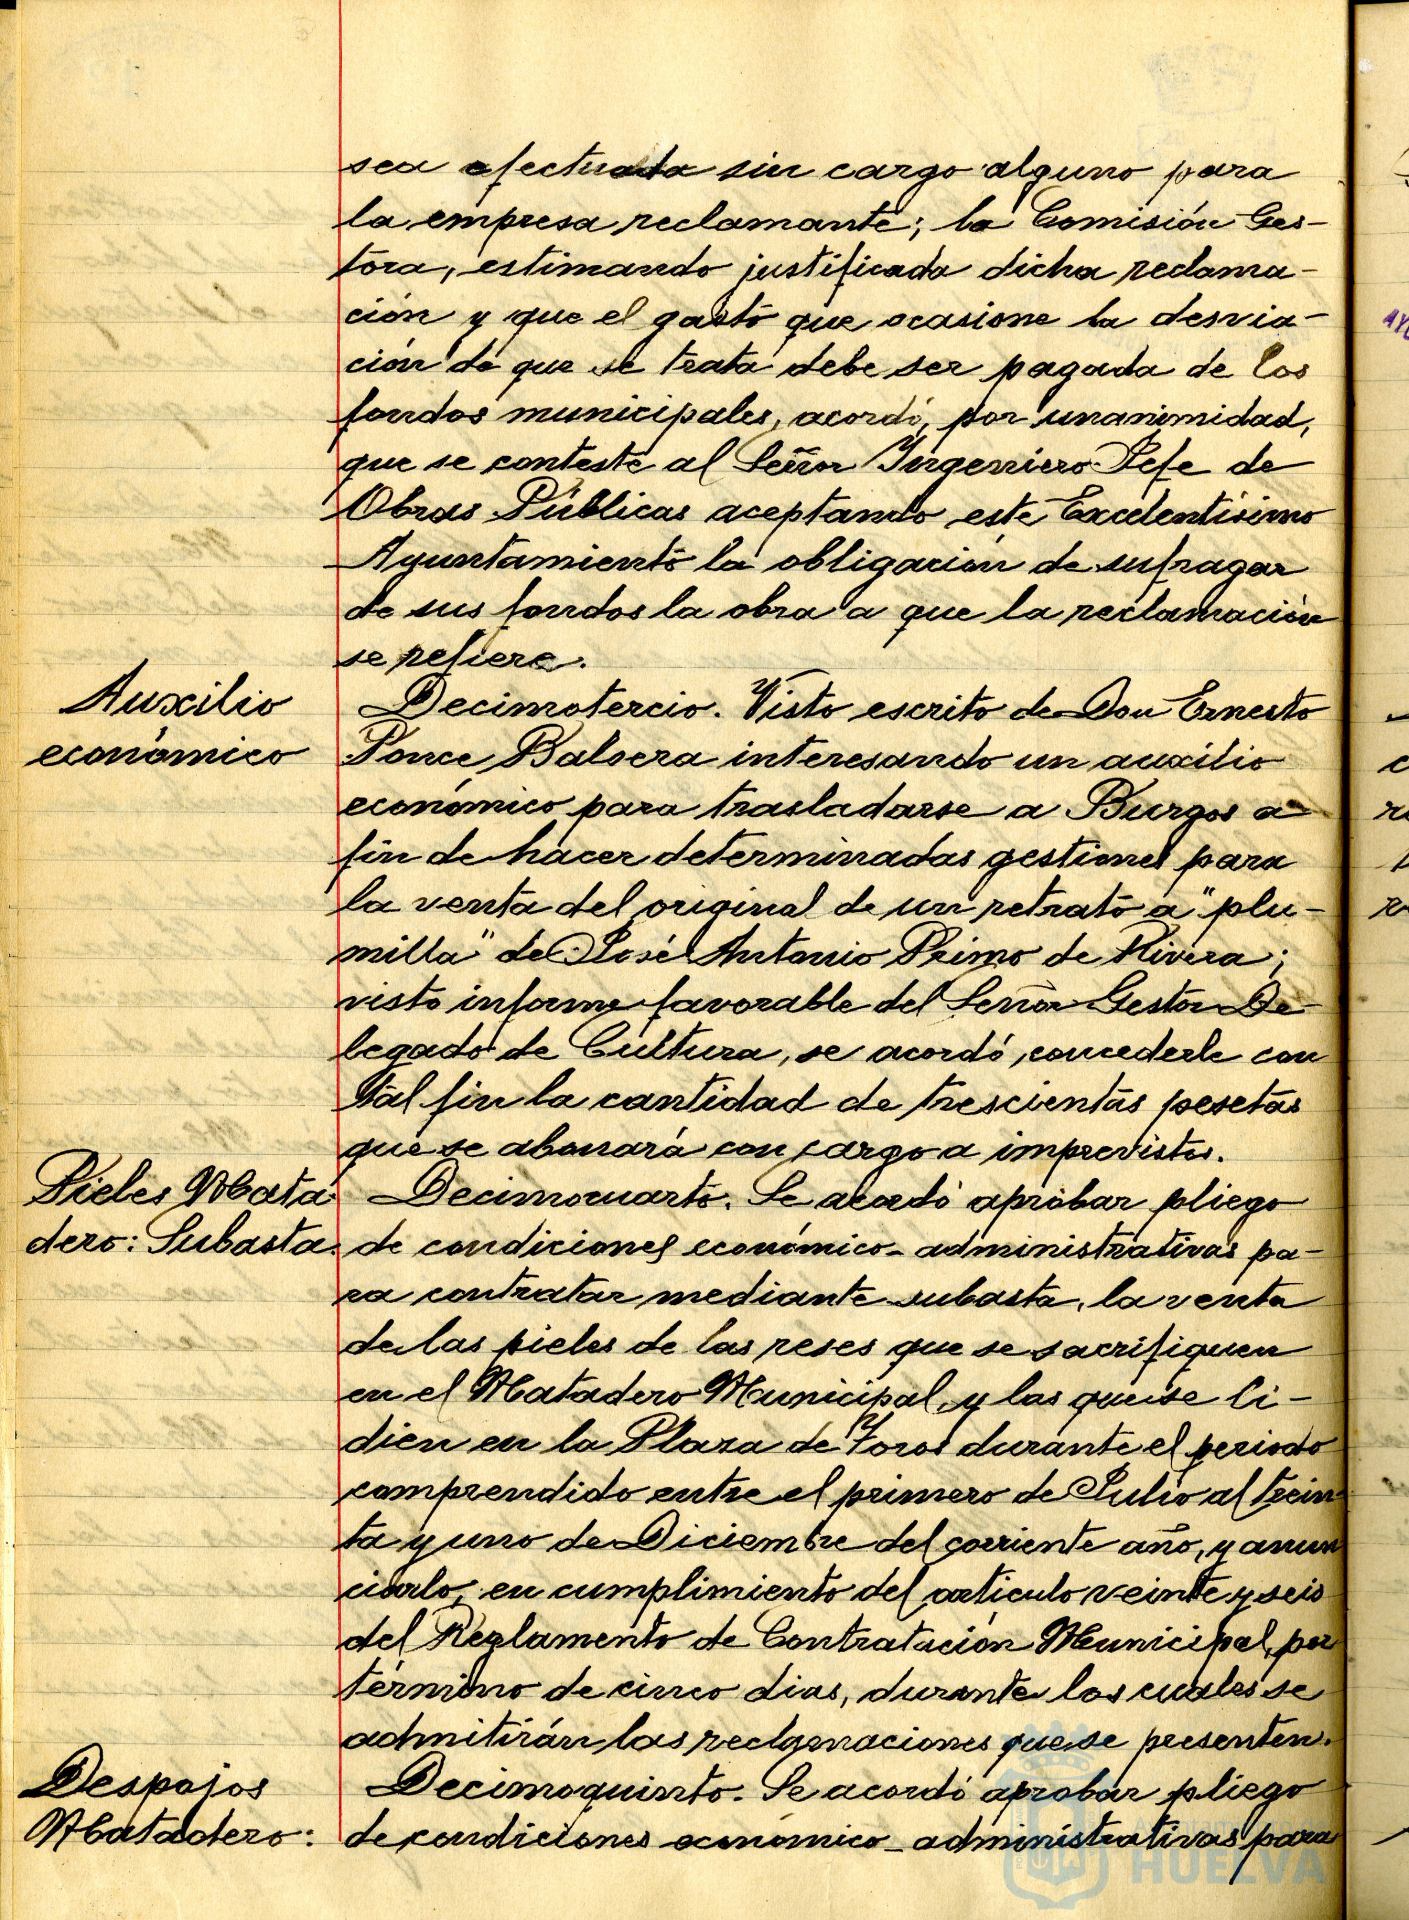 sea efectuada sin cargo alguno para
la empresa reclamante; la Comisión Ges-
tora, estimando justificada dicha reclama-
ción y que el gasto que ocasione la desvia-
ción de que se trata debe ser pagada de los
fondos municipales, acordó, por unanimidad,
que se conteste al Señor Ingeniero Jefe de
Obras Públicas aceptando este Excelentísimo
Ayuntamiento la obligación de sufragar
de sus fondos la obra a que la reclamación
se refiere.
Auxilio
económico
Decimotercio. Visto escrito de Don Ernesto
Ponce Balsera interesando un auxilio
económico para trasladarse a Burgos a
fin de hacer determinadas gestiones para
la venta del original de un retrato a "plu-
milla" de José Antonio Primo de Rivera;
visto informe favorable del Señor Gestor De-
legado de Cultura, se acordó, concederle con
tal fin la cantidad de trescientas pesetas
que se abonará con cargo a imprevistos.
Pieles Mata
dero: Subasta.
Decimocuarto. Se acordó aprobar pliego
de condiciones económico-administrativas pa-
ra contratar mediante subasta, la venta
de las pieles de las reses que se sacrifiquen
en el Matadero Municipal, y las que se li-
dien en la Plaza de Toros durante el periodo
comprendido entre el primero de Julio al trein-
ta y uno de Diciembre del corriente año, y anun
ciarlo, en cumplimiento del articulo veinte y seis
del Reglamento de Contratación Municipal, por
término de cinco dias, durante los cuales se
admitirán las reclamaciones que se presenten.
Despojos
Matadero:
Decimoquinto. Se acordó aprobar pliego
de condiciones económico-administrativas para
HUELVA